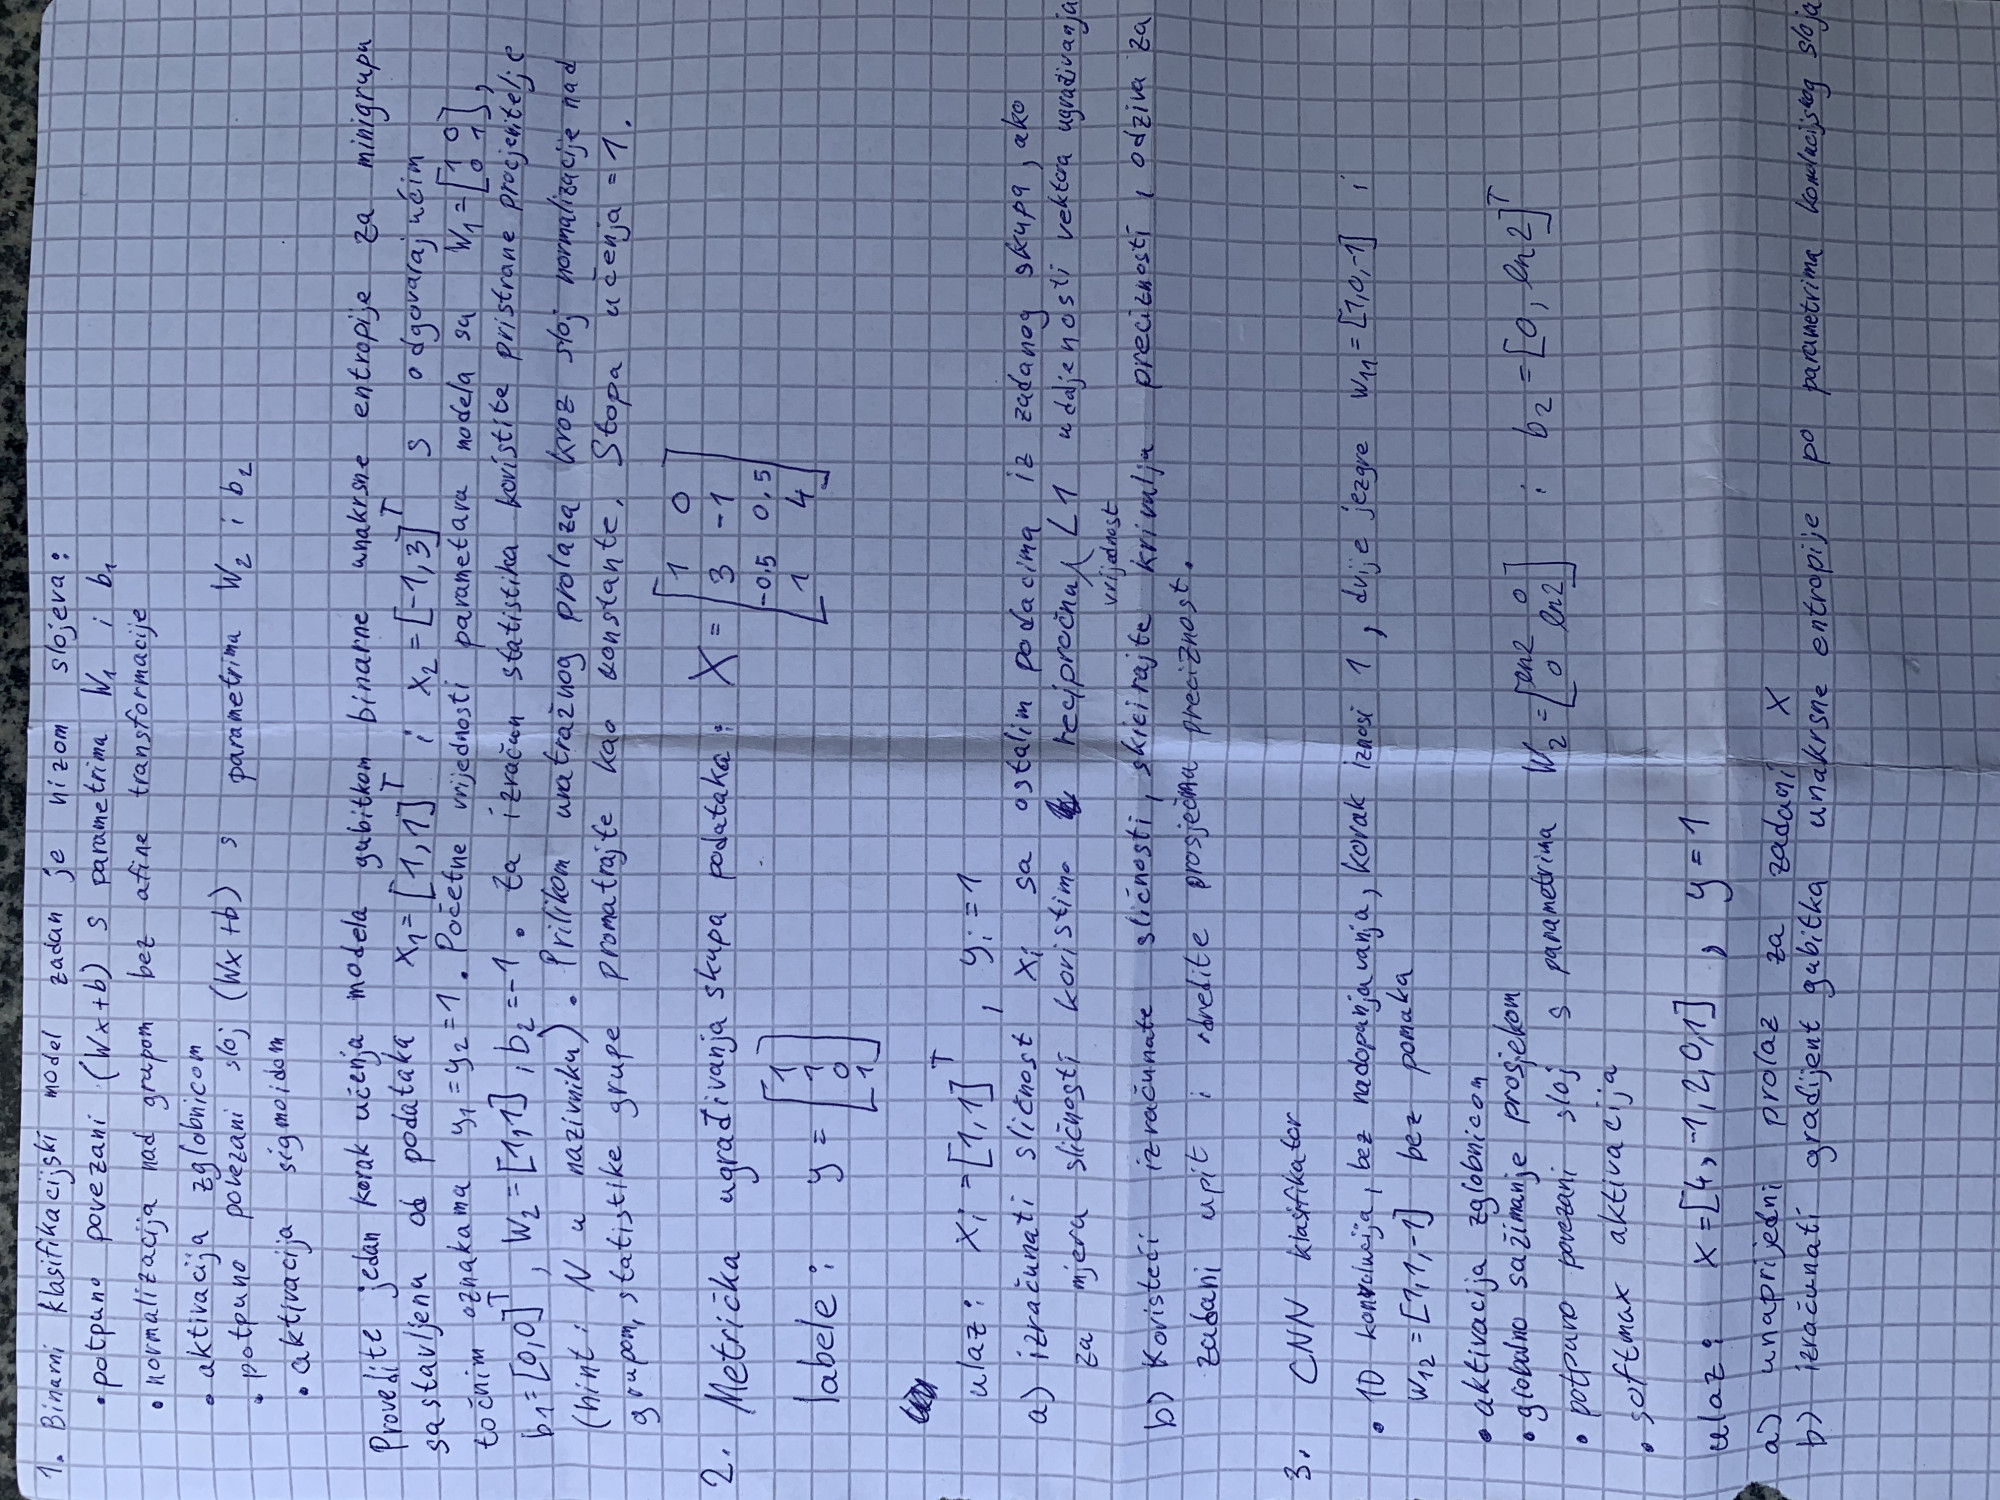 1. Binarni klasifikacijski model zadan je nizom slojeva:
• potpuno povezani (Wx+b) s parametrima W₁ i b₁
• normalizacija nad grupom bez afine transformacije
• aktivacija zglobnicom
• potpuno povezani sloj (Wx+b) s parametrima W₂ i b₂
• aktivacija sigmoidom
Provedite jedan korak učenja modela gubitkom binarne unakrsne entropije za minigrupu
sastavljenu od podataka x₁=[1,1]ᵀ i x₂=[-1,3]ᵀ s odgovarajućim
točnim oznakama y₁=y₂=1. Početne vrijednosti parametara modela su W₁=[1 0; 0 1],
b₁=[0,0]ᵀ, W₂=[1,1] i b₂=-1. Za izračun statistika koristite pristrane procjenitelje
(hint: N u nazivniku). Prilikom unatražnog prolaza kroz sloj normalizacije nad
grupom, statistike grupe promatrajte kao konstante. Stopa učenja=1.
2. Metrička ugrađivanja skupa podataka: X=[1 0; 3 -1; -0,5 0,5; 1 4]
labele: y=[1; 1; 0; 1]
ulaz: xᵢ=[1,1]ᵀ, yᵢ=1
a) izračunati sličnost xᵢ sa ostalim podacima iz zadanog skupa, ako
za mjeru sličnosti koristimo recipročnu vrijednost L1 udaljenosti vektora ugrađivanja
b) Koristeći izračunate sličnosti, skicirajte krivulju preciznosti i odziva za
zadani upit i odredite prosječnu preciznost.
3. CNN klasifikator
• 1D konvolucija, bez nadopunjavanja, korak iznosi 1, dvije jezgre w₁₁=[1,0,-1] i
w₁₂=[1,1,-1] bez pomaka
• aktivacija zglobnicom
• globalno sažimanje prosjekom
• potpuno povezani sloj s parametrima W₂=[ln2 0; 0 ln2] i b₂=[0, ln2]ᵀ
• softmax aktivacija
ulaz: x=[4,-1,2,0,1], y=1
a) unaprijedni prolaz za zadani x
b) izračunati gradijent gubitka unakrsne entropije po parametrima konvolucijskog sloja